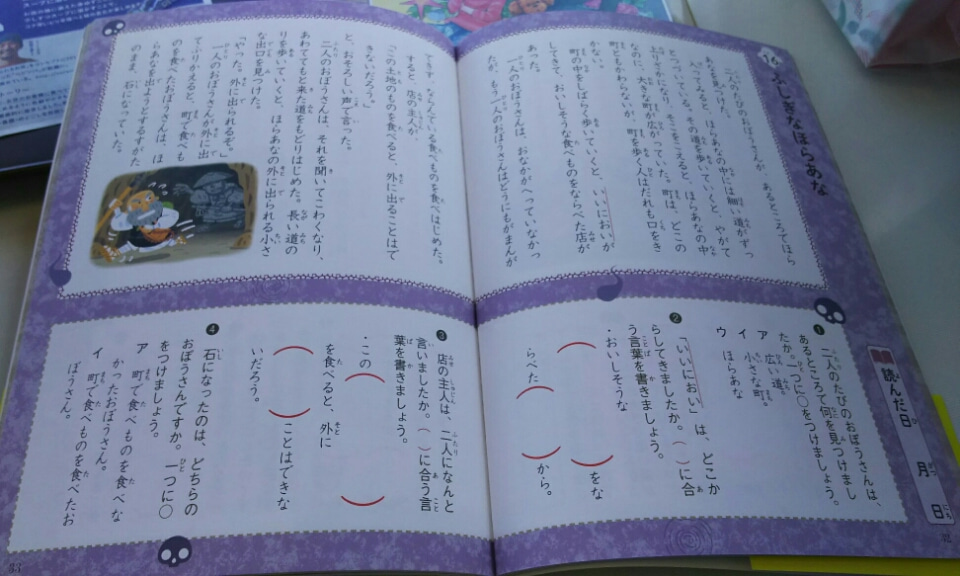 16 ふしぎなほらあな
二人のたびのおぼうさんが、あるところでほら
あなを見つけた。
入ってみると、ほらあなの中には細い道がずっ
とつづいている。その道を歩いていくと、やがて
なのに、大きな町が広がっていた。町は、どこの
町ともかわらないが、町を歩く人はだれも口をき
かない。
町の中をしばらく歩いていくと、いいにおいが
してきて、おいしそうな食べものをならべた店が
あった。
一人のおぼうさんは、おなかがへっていなかっ
たが、もう一人のおぼうさんはどうにもがまんが
できず、ならんでいる食べものを食べはじめた。
すると、店の主人が、
「この土地のものを食べると、外に出ることはで
きないだろう。」
と、おそろしい声で言った。
二人のおぼうさんは、それを聞いてこわくなり、
あわててもと来た道をもどりはじめた。長い道の
りを歩いていくと、ほらあなの外に出られる小さ
な出口を見つけた。
「やった。外に出られるぞ。」
一人のおぼうさんが外に出
てふりかえると、町で食べも
のを食べたおぼうさんは、ほ
らあなを出ようとするすがた
のまま、石になっていた。
読んだ日 月 日
❶ 二人のたびのおぼうさんは、
あるところで何を見つけまし
たか。一つに○をつけましょう。
ア 広い道。
イ 小さな町。
ウ ほらあな
❷ 「いいにおい」は、どこか
らしてきましたか。( )に合
う言葉を書きましょう。
・おいしそうな
( )をな
らべた( )から。
❸ 店の主人は、二人になんと
言いましたか。( )に合う言
葉を書きましょう。
・この( )
を食べると、外に
( )ことはできな
いだろう。
❹ 石になったのは、どちらの
おぼうさんですか。一つに○
をつけましょう。
ア 町で食べものを食べな
かったおぼうさん。
イ 町で食べものを食べたお
ぼうさん。
32
33